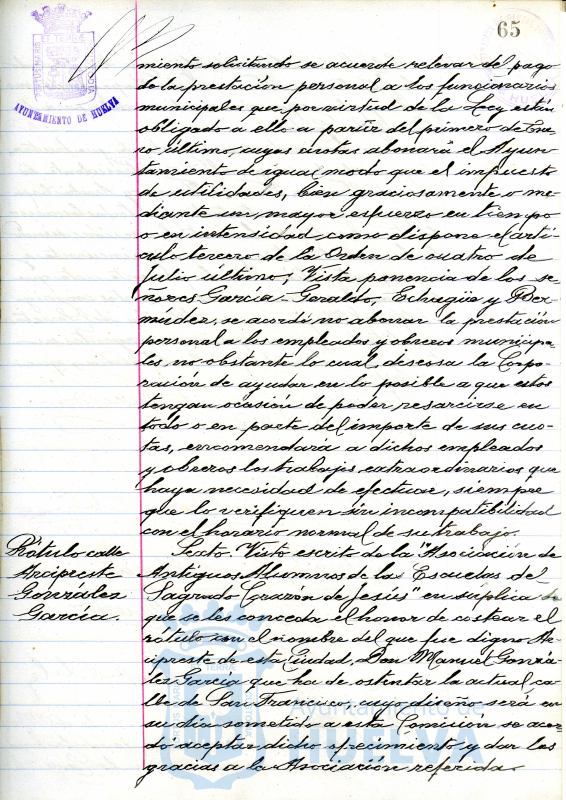 65
AYUNTAMIENTO DE HUELVA
miento solicitando se acuerde relevar del pago
de la prestación personal a los funcionarios
municipales que por virtud de la Ley están
obligado a ello a partir del primero de Ene-
ro último, cuyas cuotas abonará el Ayun-
tamiento de igual modo que el impuesto
de utilidades, bien graciosamente o me-
diante un mayor esfuerzo en tiempo
o en intensidad como dispone el artí-
culo tercero de la Orden de cuatro de
Julio último; Vista ponencia de los se-
ñores García-Geraldo, Echagüe y Ber-
múdez, se acordó no abonar la prestación
personal a los empleados y obreros municipa-
les no obstante lo cual, deseosa la Corpo-
ración de ayudar en lo posible a que estos
tengan ocasión de poder resarcirse en
todo o en parte del importe de sus cuo-
tas, encomendará a dichos empleados
y obreros los trabajos extraordinarios que
haya necesidad de efectuar, siempre
que lo verifiquen sin incompatibilidad
con el horario normal de su trabajo.
Rótulo calle
Arcipreste
González
García.
Sexto. Visto escrito de la "Asociación de
Antiguos Alumnos de las Escuelas del
Sagrado Corazón de Jesús" en suplica de
que se les conceda el honor de costear el
rótulo con el nombre del que fue digno Ar-
cipreste de esta Ciudad, Don Manuel Gonzá-
lez García que ha de ostentar la actual ca-
lle de San Francisco, cuyo diseño será en
su día sometido a esta Comisión, se acor-
dó aceptar dicho ofrecimiento y dar las
gracias a la Asociación referida.
Ayuntamiento de
HUELVA